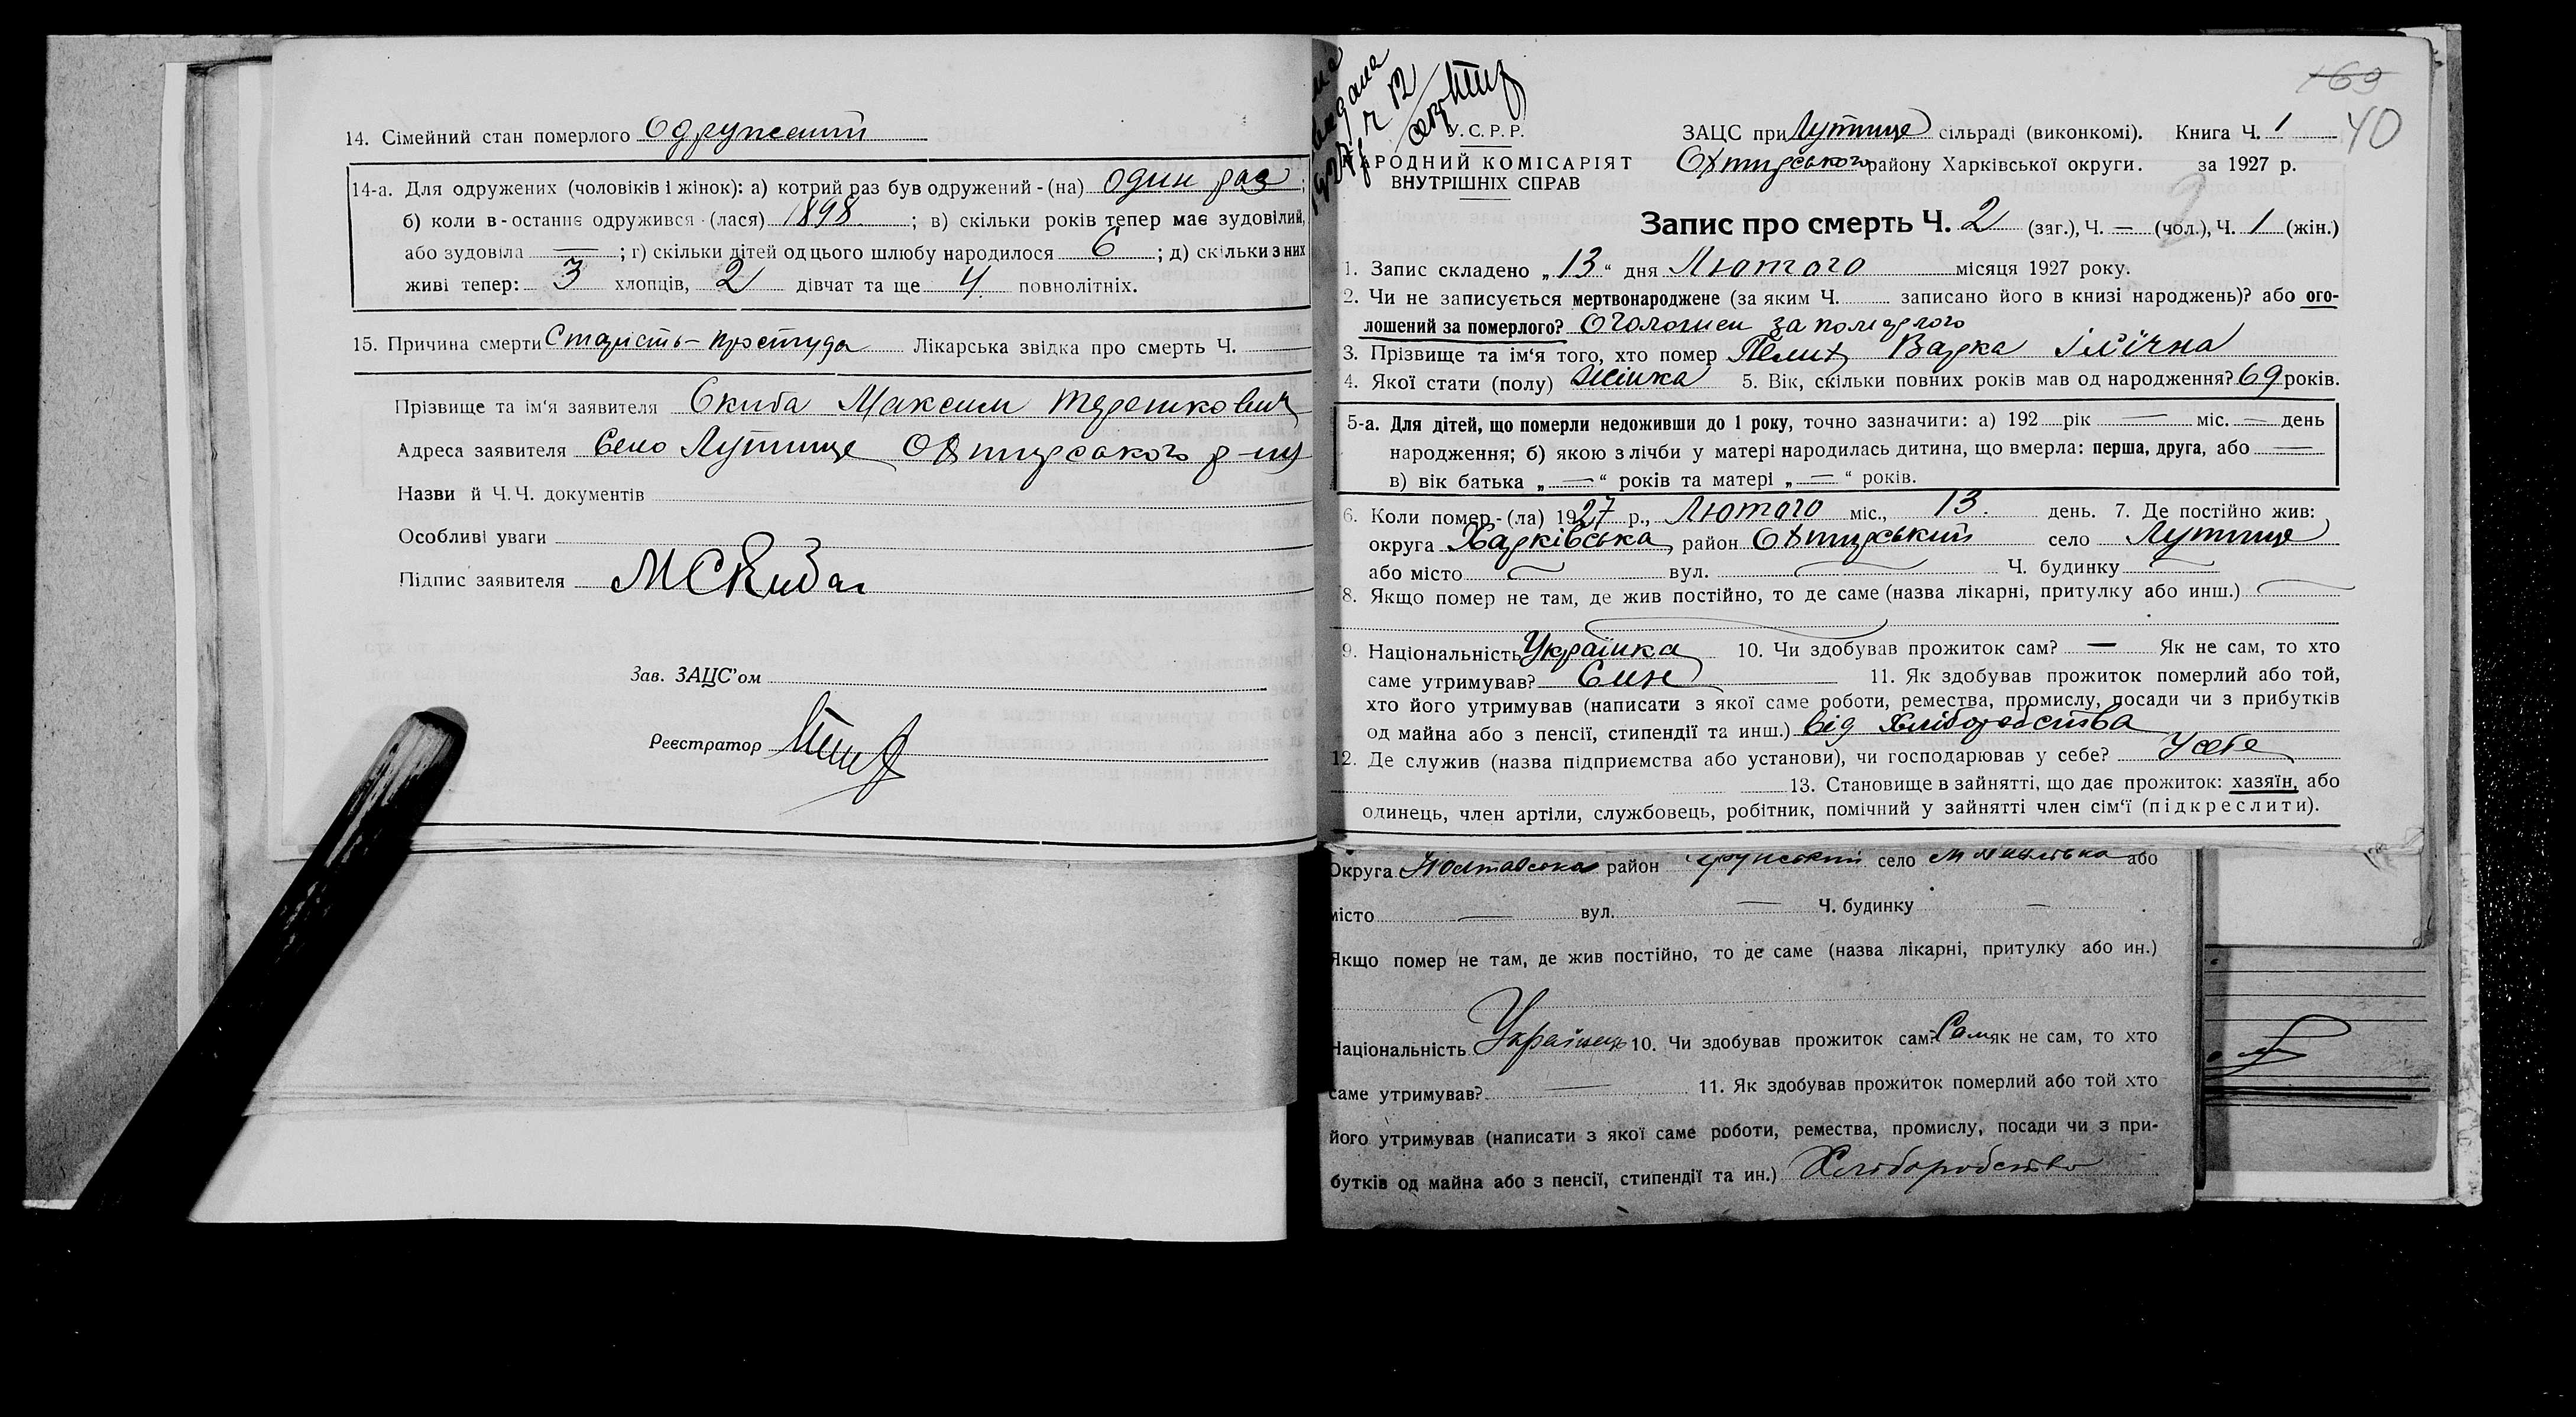 14. Сімейний стан померлого Одружений
14-а. Для одружених (чоловіків і жінок): а) котрий раз був одружений - (на) один раз;
б) коли в - останнє одружився - (лася) 1898 ; в) скільки років тепер має зудовілий,
або зудовіла — ; г) скільки дітей од цього шлюбу народилося 6 ; д) скільки з них
живі тепер: 3 хлопців, 2 дівчат та ще 4. повнолітніх.
15. Причина смерти Старість - простуда Лікарська звідка про смерть Ч.
Прізвище та ім'я заявителя Скиба Максим
Адреса заявителя Село Лутище Охтирського р-ну
Назви й Ч.Ч. документів
Особливі уваги
Підпис заявителя МСкиба
Зав. ЗАЦС'ом
Реєстратор
169
40
У.С.Р.Р.
НАРОДНИЙ КОМІСАРІЯТ
ВНУТРІШНІХ СПРАВ
ЗАЦС при Лутище сільраді (виконкомі). Книга Ч. 1
Охтирського району Харківської округи. за 1927 р.
2
Запис про смерть Ч. 2 (заг.), Ч. — (чол.), Ч. 1 (жін.)
1. Запис складено „13" дня Лютого місяця 1927 року.
2. Чи не записується мертвонароджене (за яким Ч. записано його в книзі народжень)? або ого-
лошений за померлого? Оголошен за помердлого
3. Прізвище та ім'я того, хто помер Варка Іллічна
4. Якої стати (полу) Жінка 5. Вік, скільки повних років мав од народження? 69 років.
5-а. Для дітей, що померли недоживши до 1 року, точно зазначити: а) 192 рік — міс. — день
народження; б) якою з лічби у матері народилась дитина, що вмерла: перша, друга, або —
в) вік батька „—" років та матері „—" років.
6. Коли помер - (ла) 1927 р., Лютого міс., 13. день. 7. Де постійно жив:
округа Харківська район Охтирський село Лутище
або місто — вул. — Ч. будинку —
8. Якщо помер не там, де жив постійно, то де саме (назва лікарні, притулку або инш.) —
9. Національність Українка 10. Чи здобував прожиток сам? — Як не сам, то хто
саме утримував? Син 11. Як здобував прожиток померлий або той,
хто його утримував (написати з якої саме роботи, ремества, промислу, посади чи з прибутків
од майна або з пенсії, стипендії та инш.) Від хліборобства
12. Де служив (назва підприємства або установи), чи господарював у себе? У себе
13. Становище в зайнятті, що дає прожиток: хазяїн, або
одинець, член артіли, службовець, робітник, помічний у зайнятті член сім'ї (підкреслити).
Округа Полтавська район село або
місто — вул. — Ч. будинку —
Якщо помер не там, де жив постійно, то де саме (назва лікарні, притулку або ин.)
Національність Українець 10. Чи здобував прожиток сам? Сам як не сам, то хто
саме утримував? — 11. Як здобував прожиток померлий або той хто
його утримував (написати з якої саме роботи, ремества, промислу, посади чи з при-
бутків од майна або з пенсії, стипендії та ин.) Хліборобство